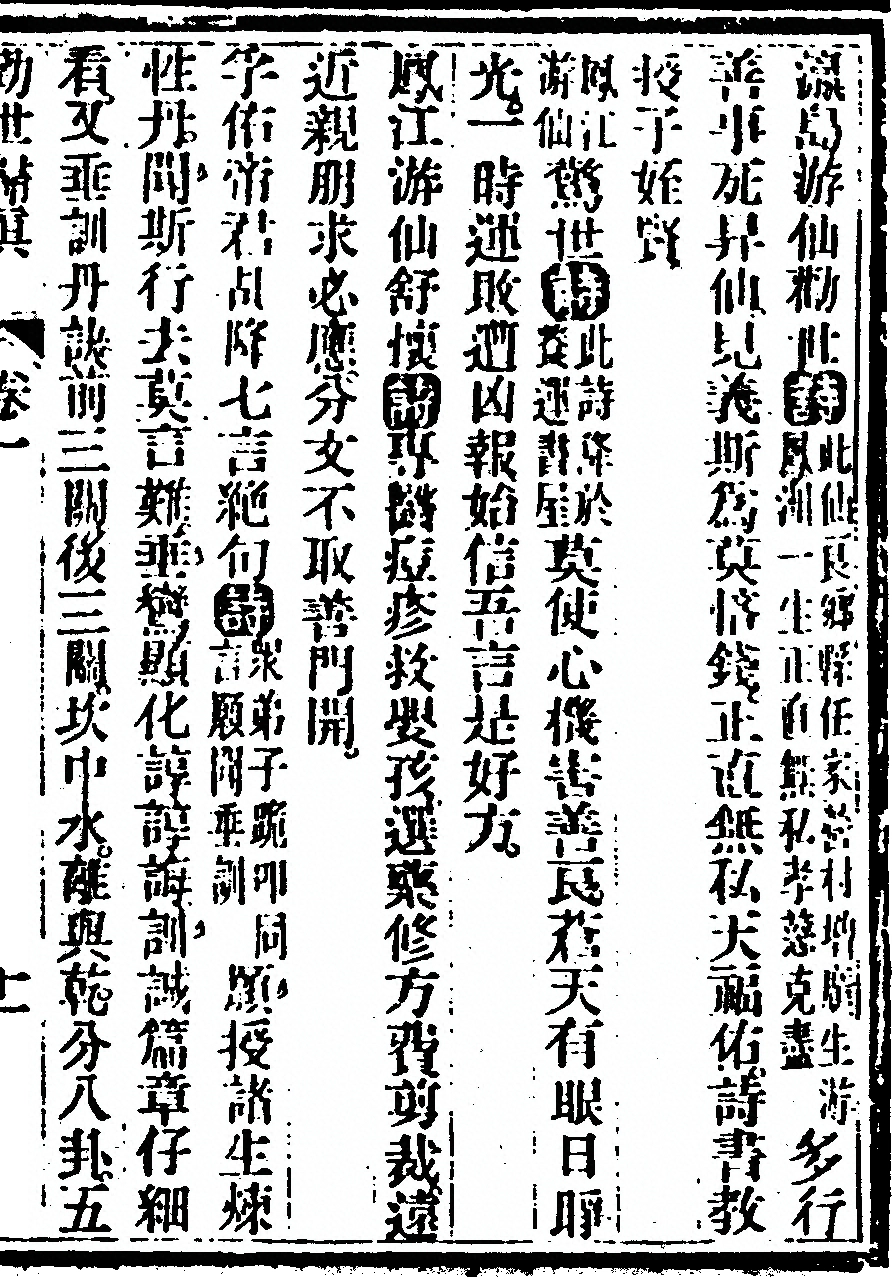 瀛島游仙勸世詩此仙良鄉縣任家營村增廣生游鳳洲一生正直無私孝慈克盡多行
善事死昇仙見義斯爲莫悋錢正直無私天福佑詩書教
授子姪賢
鳳江游仙驚世詩此詩降於養運書屋莫使心機害善良蒼天有眼日睜
光一時運敗遭凶報始信吾言是好方
鳳江游仙舒懷詩專醫痘疹救嬰孩選藥修方費剪裁遠
近親朋求必應分文不取善門開
孚佑帝君占降七言絕句詩眾弟子跪叩同言願聞垂訓願授諸生煉
性丹聞斯行去莫言難垂鸞顯化諄諄誨訓誡篇章仔細
看又垂訓丹訣前三關後三關坎中水離與乾分八卦五
勸世歸真 卷一 十一